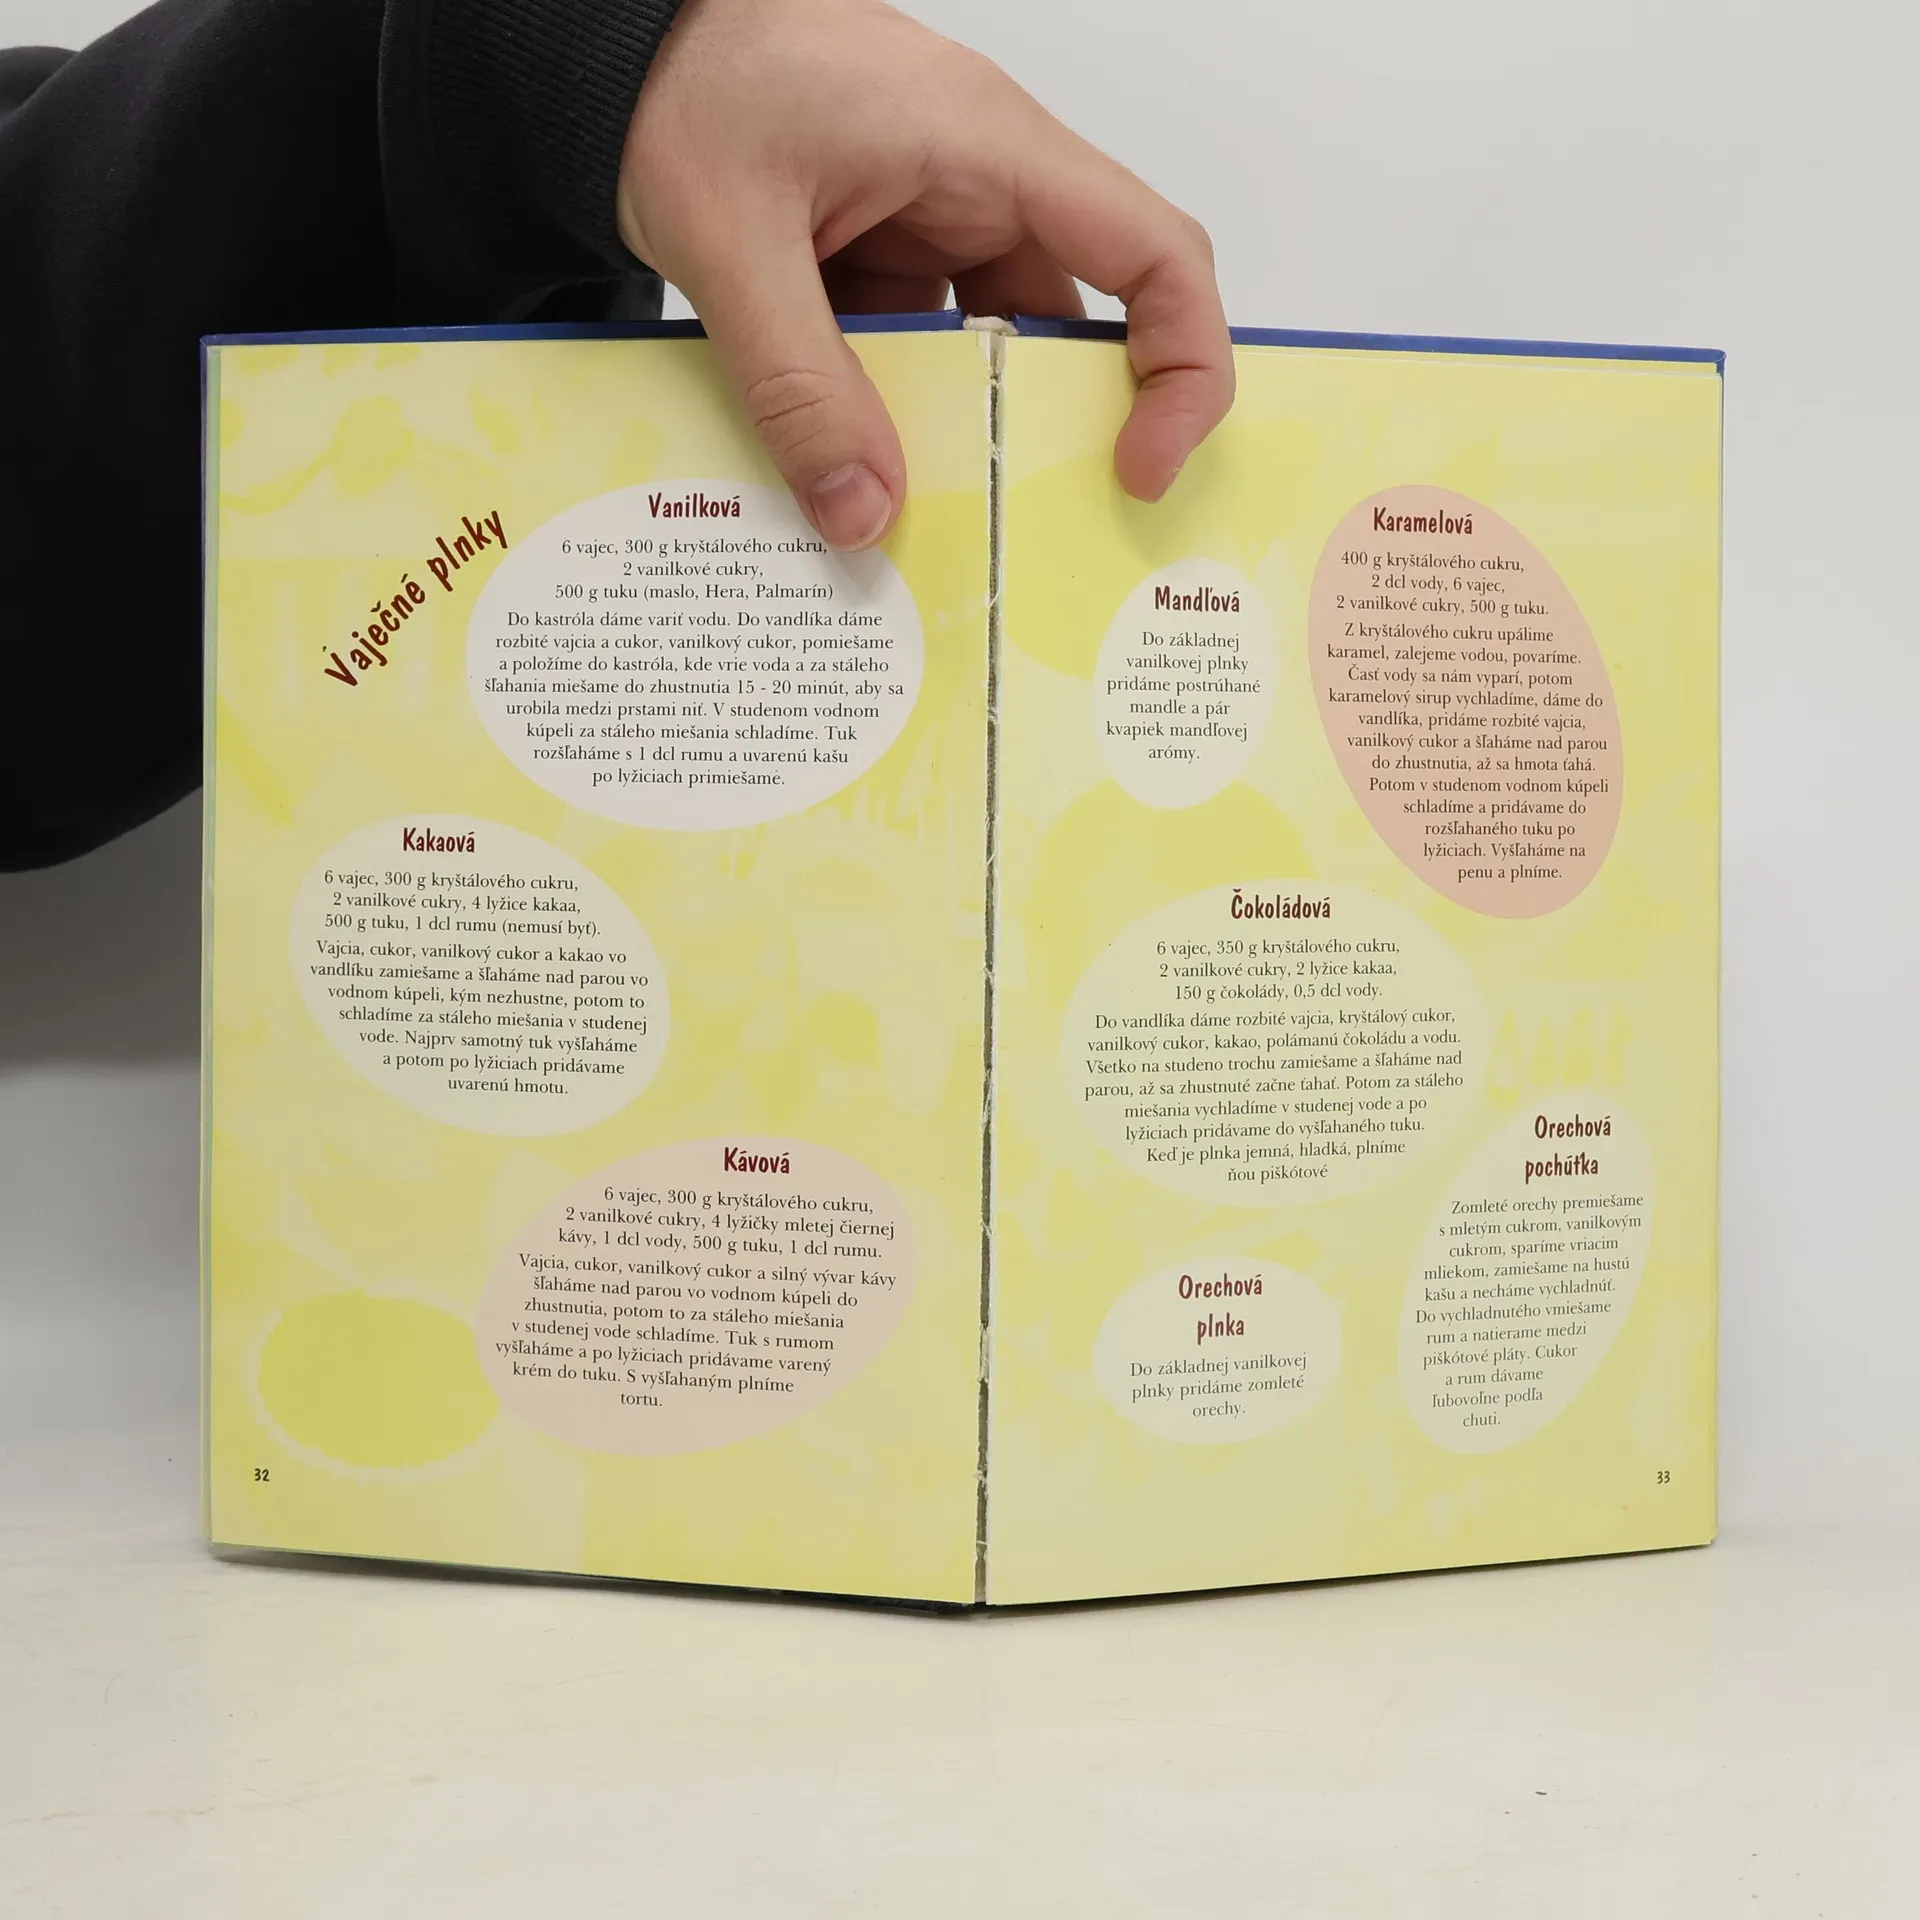 Vaječné plnky
Vanilková
6 vajec, 300 g kryštálového cukru,
2 vanilkové cukry,
500 g tuku (maslo, Hera, Palmarín)
Do kastróla dáme variť vodu. Do vandlíka dáme
rozbité vajcia a cukor, vanilkový cukor, pomiešame
a položíme do kastróla, kde vrie voda a za stáleho
šľahania miešame do zhustnutia 15 - 20 minút, aby sa
urobila medzi prstami niť. V studenom vodnom
kúpeli za stáleho miešania schladíme. Tuk
rozšľaháme s 1 dcl rumu a uvarenú kašu
po lyžiciach primiešame.
Kakaová
6 vajec, 300 g kryštálového cukru,
2 vanilkové cukry, 4 lyžice kakaa,
500 g tuku, 1 dcl rumu (nemusí byť).
Vajcia, cukor, vanilkový cukor a kakao vo
vandlíku zamiešame a šľaháme nad parou vo
vodnom kúpeli, kým nezhustne, potom to
schladíme za stáleho miešania v studenej
vode. Najprv samotný tuk vyšľaháme
a potom po lyžiciach pridávame
uvarenú hmotu.
Kávová
6 vajec, 300 g kryštálového cukru,
2 vanilkové cukry, 4 lyžičky mletej čiernej
kávy, 1 dcl vody, 500 g tuku, 1 dcl rumu.
Vajcia, cukor, vanilkový cukor a silný vývar kávy
šľaháme nad parou vo vodnom kúpeli do
zhustnutia, potom to za stáleho miešania
v studenej vode schladíme. Tuk s rumom
vyšľaháme a po lyžiciach pridávame varený
krém do tuku. S vyšľahaným plníme
tortu.
32
Mandľová
Do základnej
vanilkovej plnky
pridáme postrúhané
mandle a pár
kvapiek mandľovej
arómy.
Karamelová
400 g kryštálového cukru,
2 dcl vody, 6 vajec,
2 vanilkové cukry, 500 g tuku.
Z kryštálového cukru upálime
karamel, zalejeme vodou, povaríme.
Časť vody sa nám vyparí, potom
karamelový sirup vychladíme, dáme do
vandlíka, pridáme rozbité vajcia,
vanilkový cukor a šľaháme nad parou
do zhustnutia, až sa hmota ťahá.
Potom v studenom vodnom kúpeli
schladíme a pridávame do
rozšľahaného tuku po
lyžiciach. Vyšľaháme na
penu a plníme.
Čokoládová
6 vajec, 350 g kryštálového cukru,
2 vanilkové cukry, 2 lyžice kakaa,
150 g čokolády, 0,5 dcl vody.
Do vandlíka dáme rozbité vajcia, kryštálový cukor,
vanilkový cukor, kakao, polámanú čokoládu a vodu.
Všetko na studeno trochu zamiešame a šľaháme nad
parou, až sa zhustnuté začne ťahať. Potom za stáleho
miešania vychladíme v studenej vode a po
lyžiciach pridávame do vyšľahaného tuku.
Keď je plnka jemná, hladká, plníme
ňou piškótové
Orechová
plnka
Do základnej vanilkovej
plnky pridáme zomleté
orechy.
Orechová
pochúťka
Zomleté orechy premiešame
s mletým cukrom, vanilkovým
cukrom, sparíme vriacim
mliekom, zamiešame na hustú
kašu a necháme vychladnúť.
Do vychladnutého vmiešame
rum a natierame medzi
piškótové pláty. Cukor
a rum dávame
ľubovoľne podľa
chuti.
33